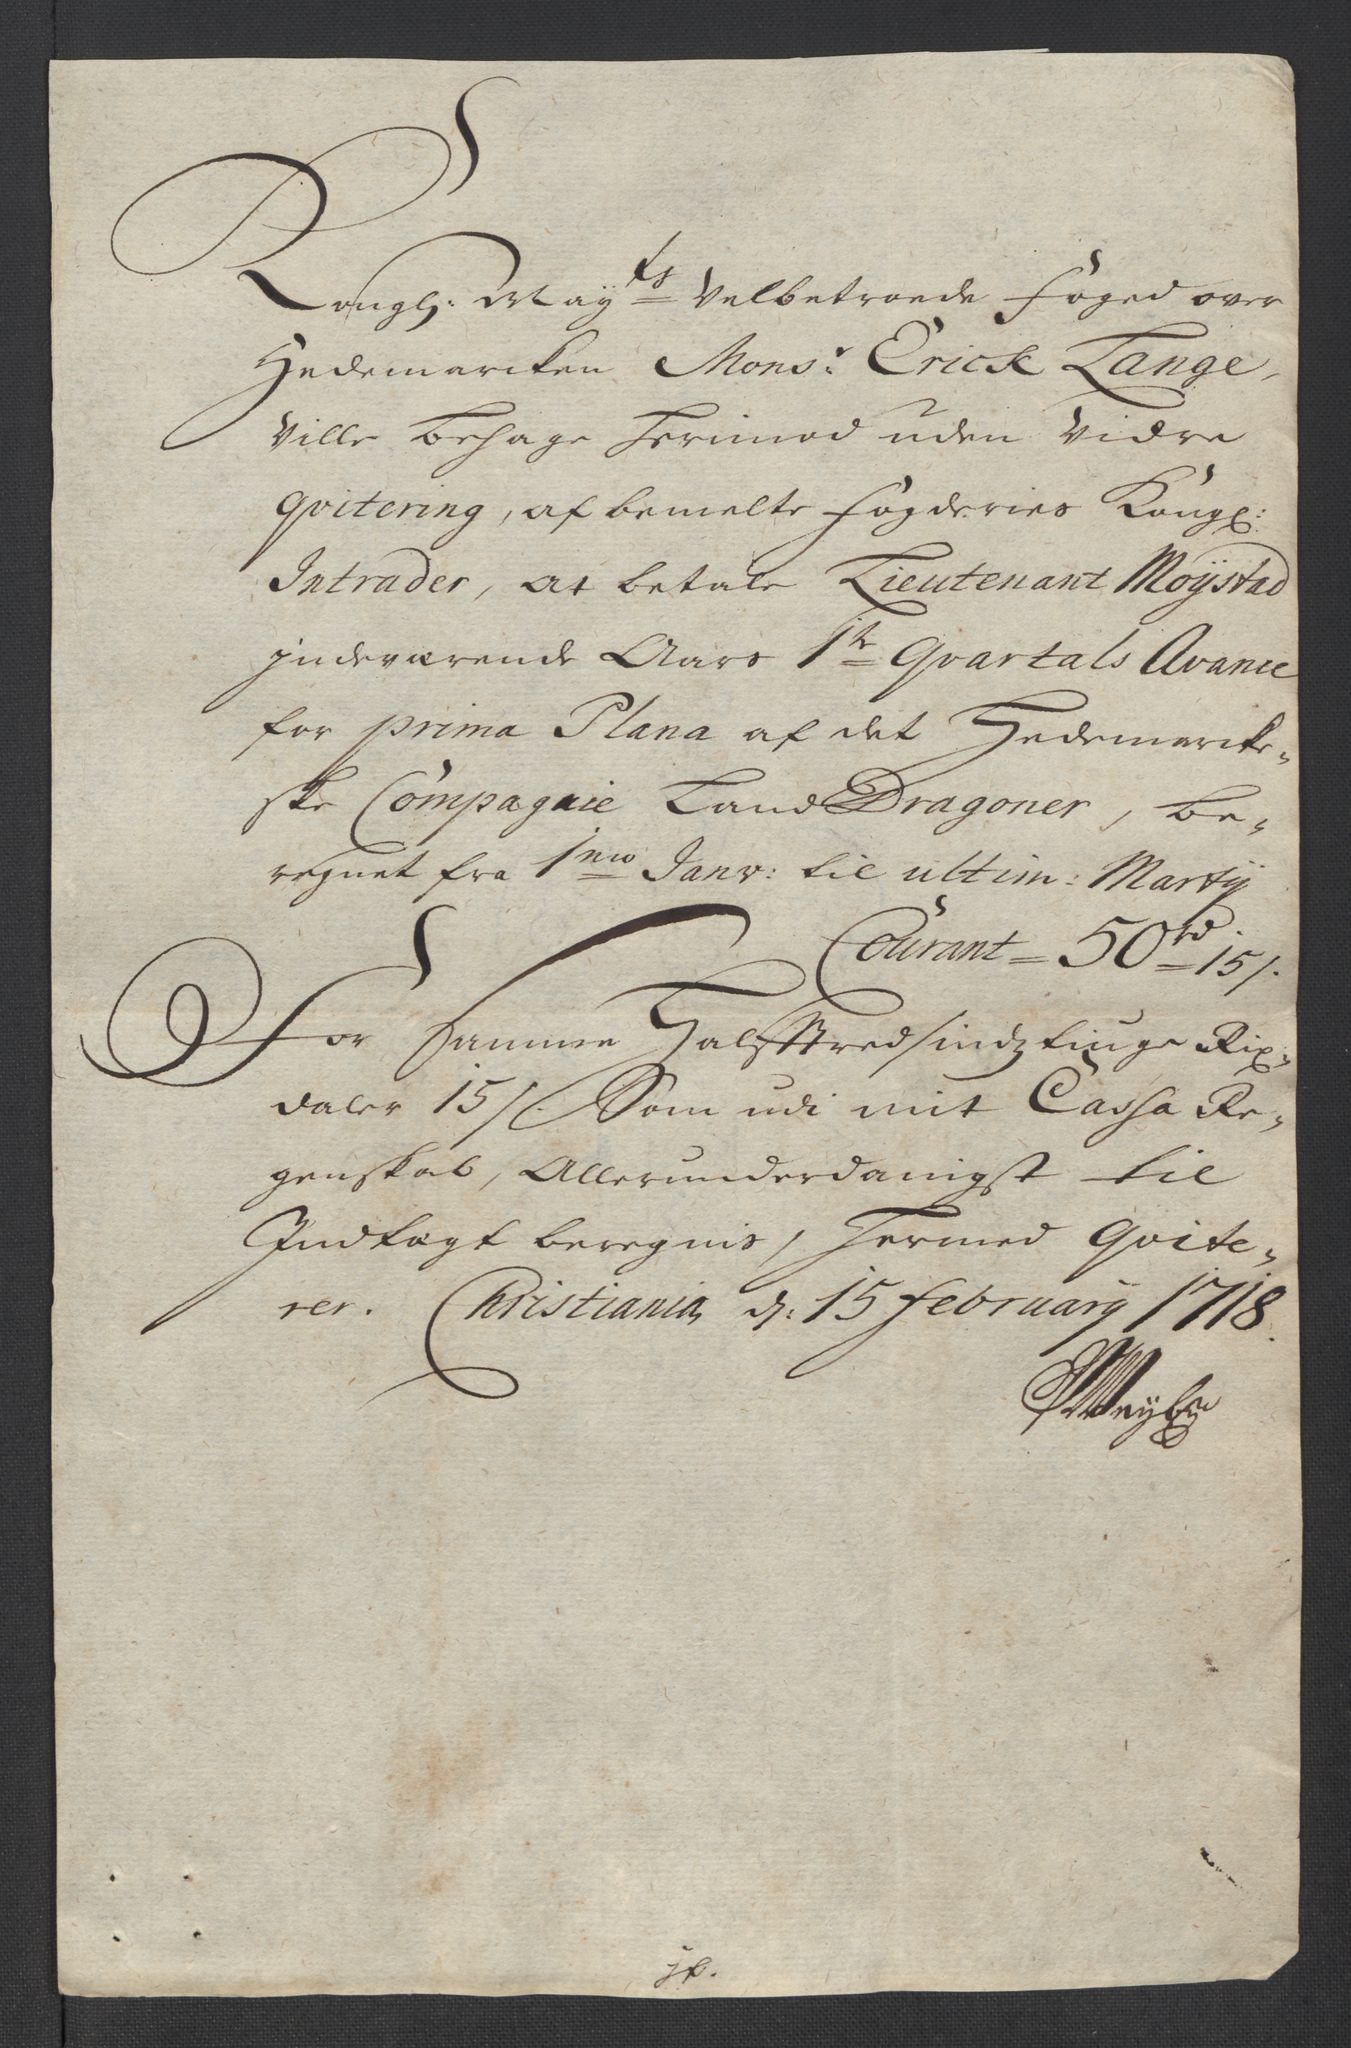 Kongl: May:ts Velbetroede Foged over
Hedemarcken Mons:r Erick Lange,
Ville behage herimod uden vidre
qvitering, af bemelte Fogderies Kongl:
Intrader, at betale Lieutenant Møystad
indeværende Aars 1te Qvartals Avance
for prima Plana af det Hedemarcke-
ske Compagnie Land Dragoner, be-
regnet fra 1mo Janv: til ultim: Martij
Courant = 50rd 15/.
For samme Halftredsindztiuge Rix-
daler 15/. Som udi mit Cassa Re-
genskab, Allerunderdanigst til
Indtægt beregnis, hermed qvite-
rer. Christiania d: 15 February 1718.